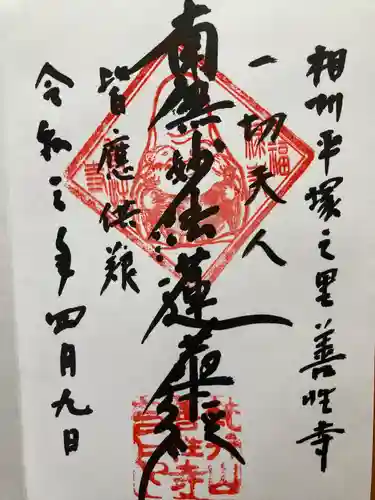 相州平塚之里善性寺
一切天人
南無妙法蓮華経
皆應供養
令和三年四月九日
福